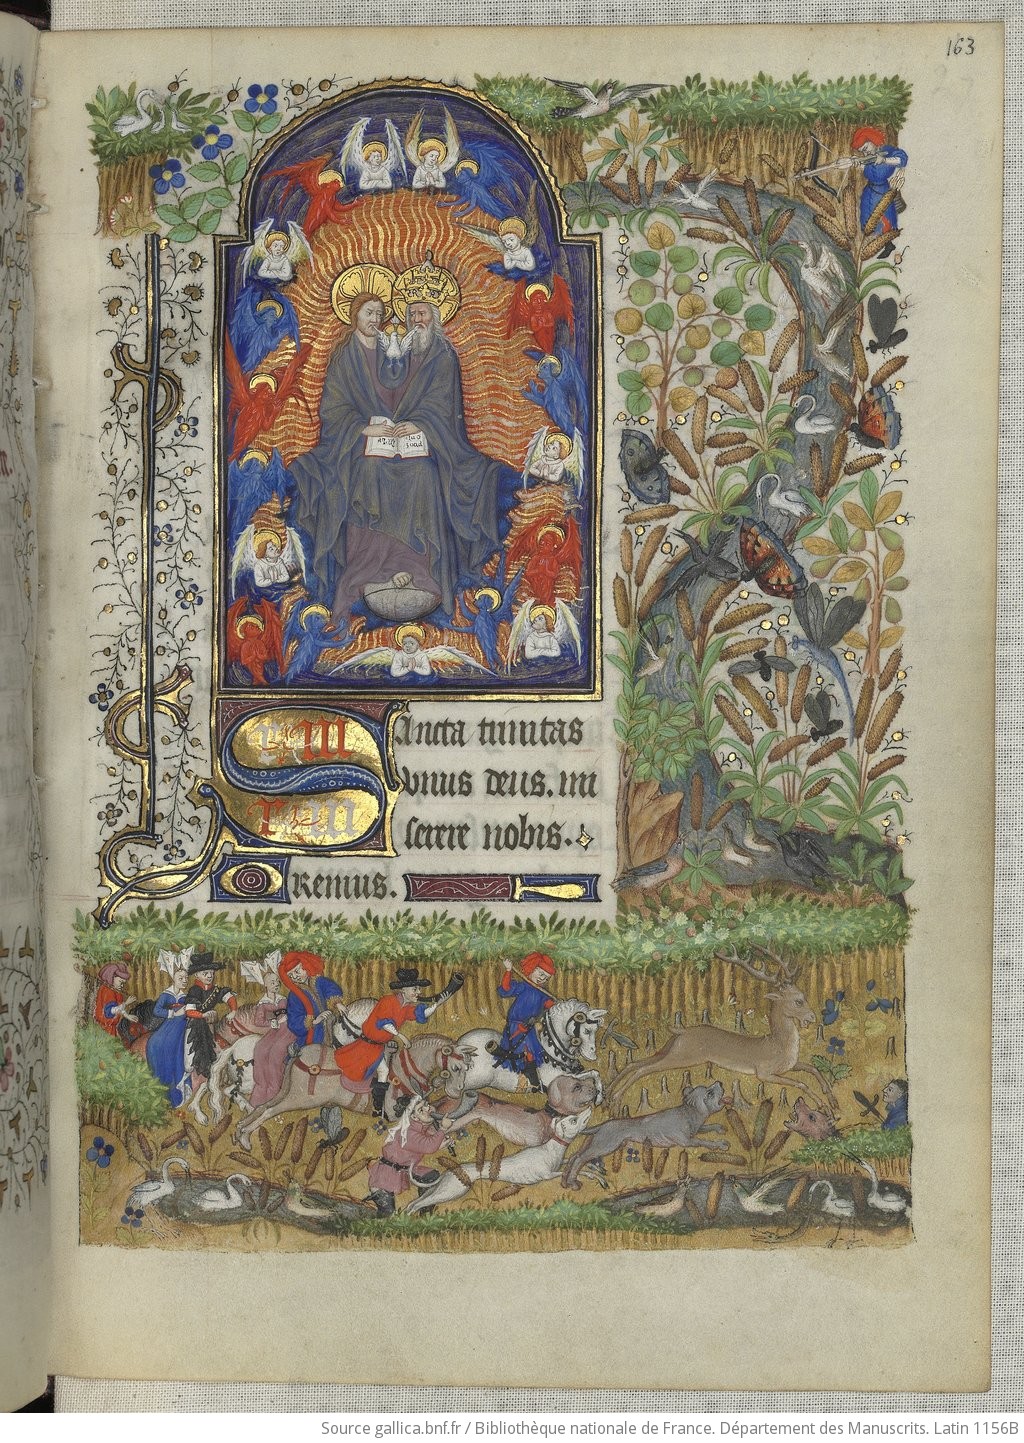 163
Sancta trinitas
vnus deus. mi
serere nobis.
Oremus.
Source gallica.bnf.fr / Bibliothèque nationale de France. Département des Manuscrits. Latin 1156B